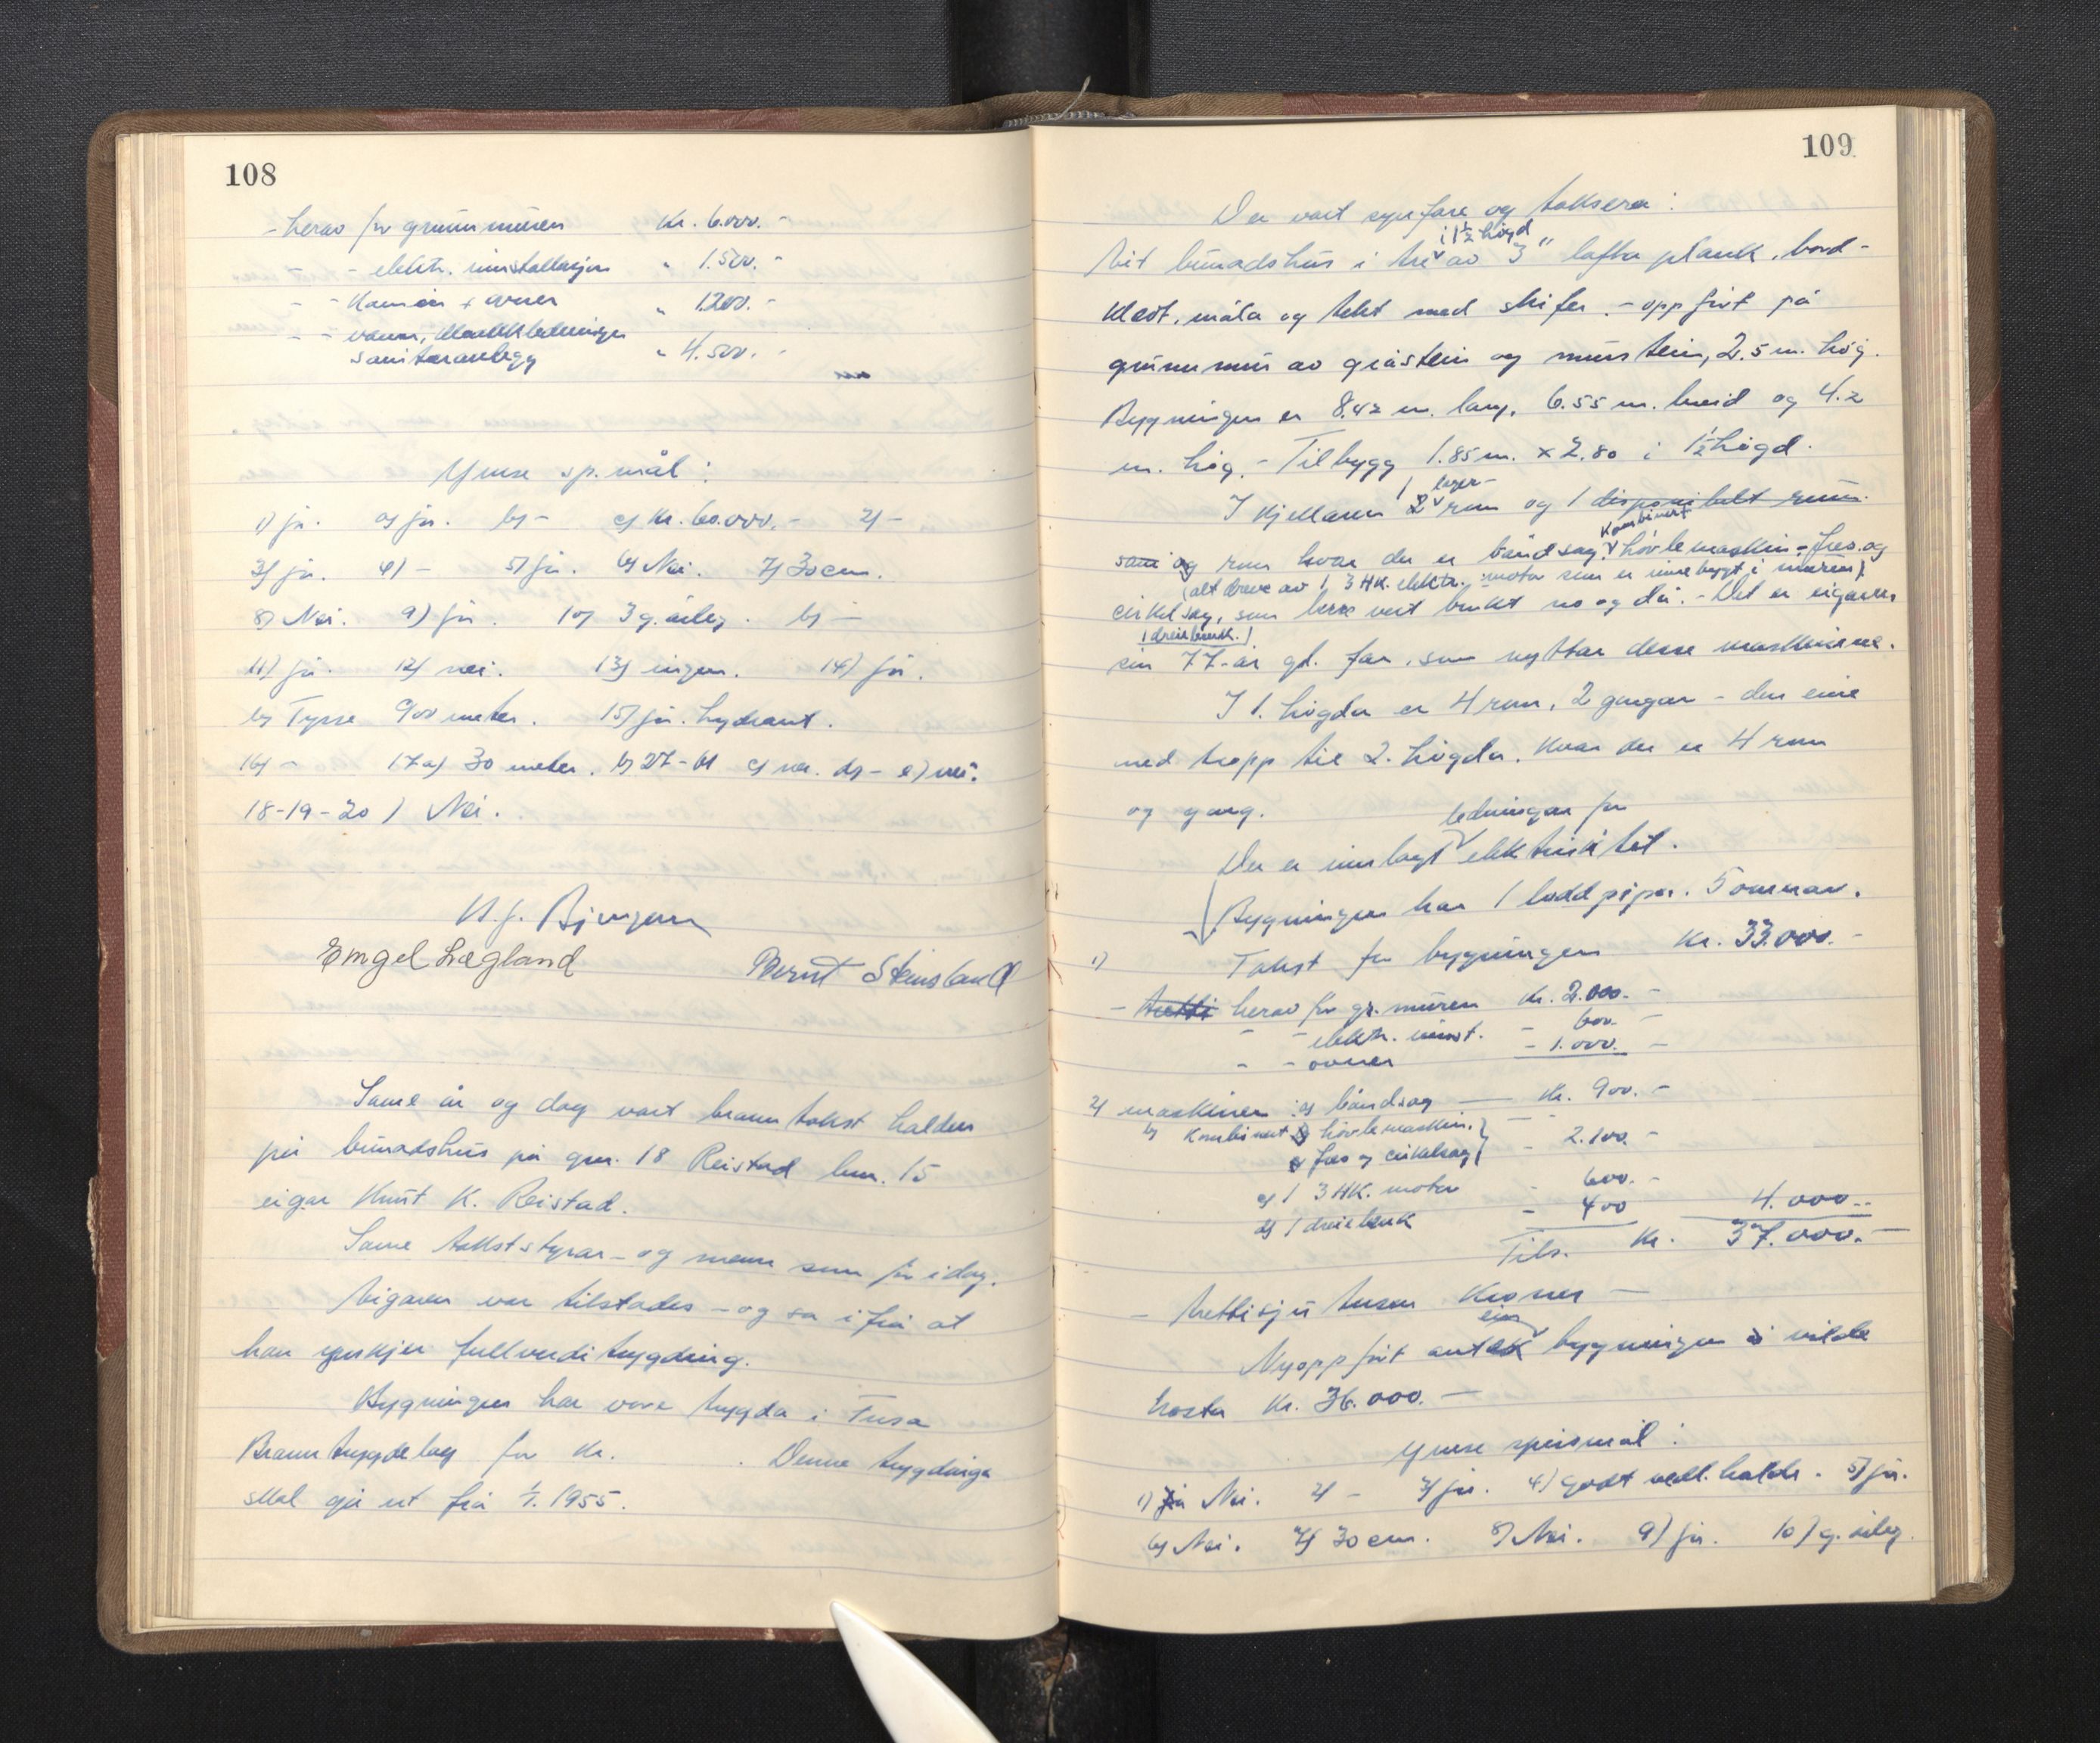 108
- herav for grunnmuren Kr. 6.000.-
- - elektr. innstallasjon " 1.500.-
- - Kamin + ovner " 1200.-
- - vann, kloakkledninger
sanitæranlegg " 4.500.-
Ymse sp.mål:
1) ja. a) ja. b) - c) kr. 60.000.- 2) -
3) ja. 4) - 5) ja. 6) Nei. 7) 30 cm.
8) Nei. 9) ja. 10) 3 g. årleg. b) -
11) ja. 12) nei. 13) ingen. 14) ja.
b) Tysse 900 meter. 15) ja. hydrant.
16) - 17a) 30 meter. b) 27-61 c) nei. d) - e) nei.
18-19-20) Nei.
Engel Lægland
Bernt Steinsland
Same år og dag vart branntakst halden
på bunadshus på gnr. 18 Reistad bnr. 15
eigar Knut K. Reistad.
Same takststyrar - og menn som før idag.
Eigaren var tilstades - og sa ifrå at
han ynskjer fullverditrygding.
Bygningen har vore trygda i Fusa
Branntrygdelag for kr. . Denne trygdinga
skal gå ut frå 1/1. 1955.
109
Der vart synfare og taksera:
i 1 1/2 høgd
Eit bunadshus i tre av 3" lafta plank, bord-
kledt, måla og tekt med skifer. - oppført på
grunnmur av gråstein og murstein, 2.5 m. høg.
Bygningen er 8.42 m. lang, 6.55 m. breid og 4.2
m. høg. - Tilbygg 1.85 m. x 2.80 i 1 1/2 høgd.
1 lager-
I kjellaren 2 rom og 1 disponibelt rum.
kombinert
som og rom kvar der er båndsag, høvlemaskin - fres og
(alt dreve av 1 3 HK. elektr. motor som er innebygt i muren).
cirkelsag, som berre vert brukt no og då. - Det er eigaren
1 dreiebenk.)
sin 77-år gl. far, som nyttar desse maskinene.
I 1. høgda er 4 rom, 2 gangar - den eine
med tropp til 2. høgda. Kvar der er 4 rom
og gang.
ledningar for
Der er innlagt elektrisitet.
Bygningen har 1 lodd pipa. 5 omnar.
1) Takst for bygningen Kr. 33.000.-
- tretti herav for gr. muren Kr. 2.000.-
- - elektr. innst. - 600.-
- - ovner - 1.000.-
2) maskiner: a) båndsag — Kr. 900.-
b) Kombinert høvlemaskin,
fres og cirkelsag - 2.100.-
c) 1 3 HK. motor - 600.-
d) 1 dreiebenk - 400 4.000.-
Tils. Kr. 37.000.-
- trettisju tusen Kroner -
ein
Nyoppført antek bygningen å vilde
kosta Kr. 36.000.-
Ymse spursmål:
1) ja Nei. 2) - 3) ja. 4) godt vedl.halde. 5) ja.
6) Nei. 7) 30 cm. 8) Nei. 9) ja. 10) g. årleg.